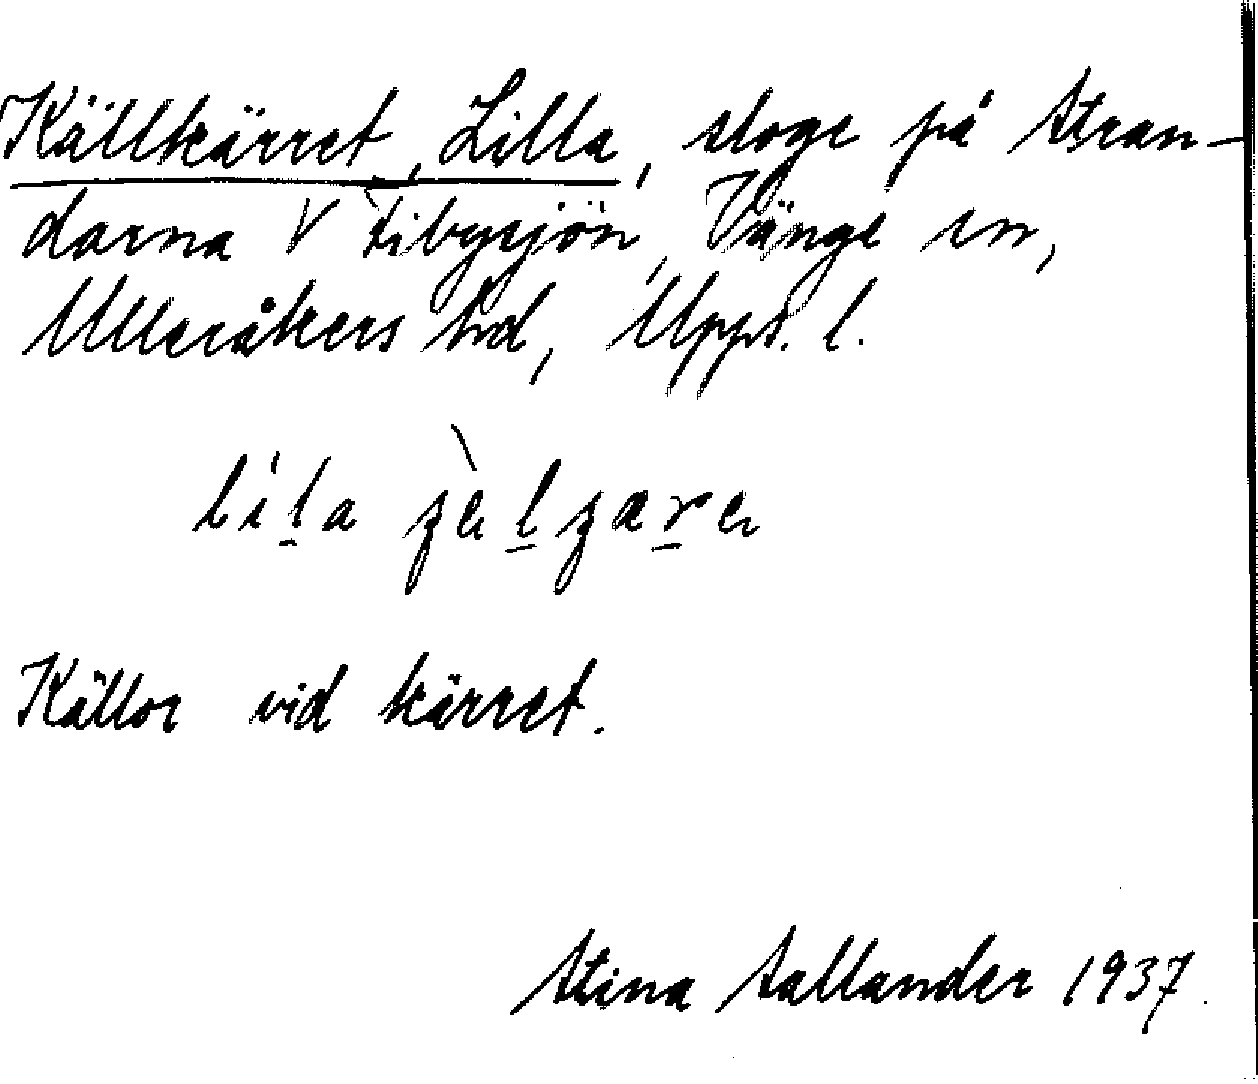 Källkärret, Lilla, sloge på stran-
darna V Fibysjön, Vänge sn,
Ulleråkers hd, Upps. l.
Källor vid kärret.
Stina Sallander 1937.